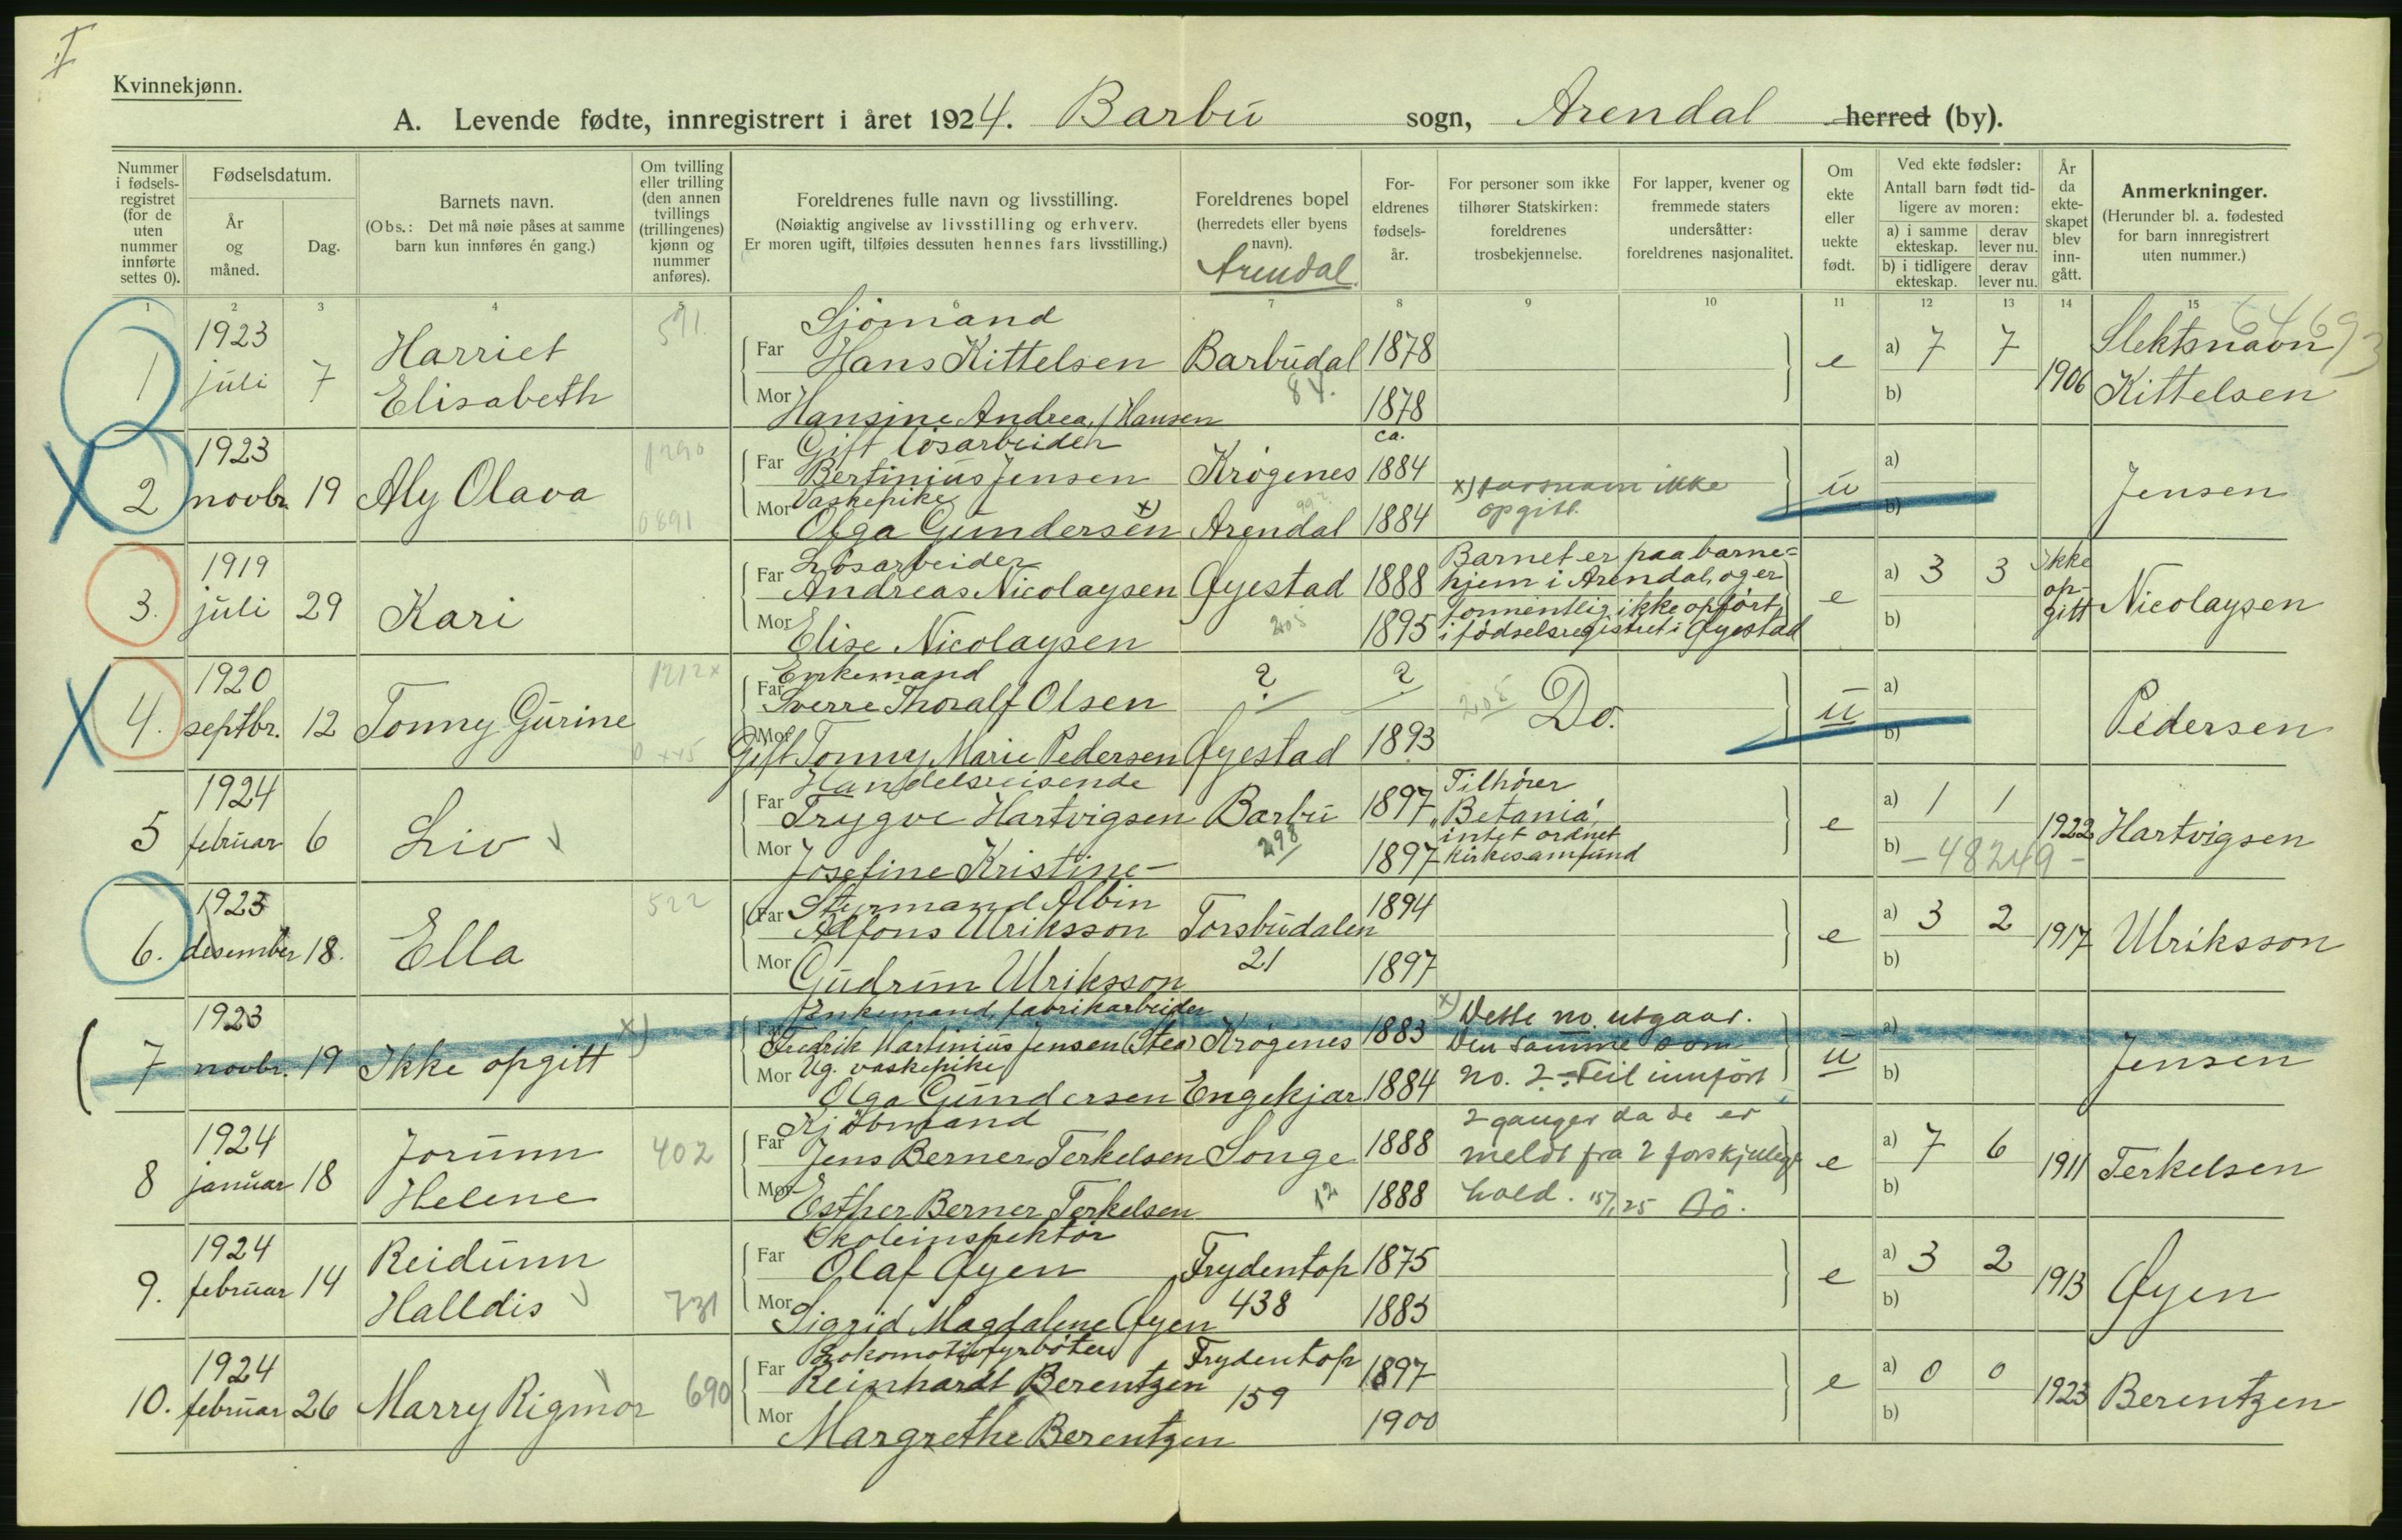 I
Kvinnekjønn.
A. Levende fødte, innregistrert i året 1924. Barbu sogn, Arendal herred (by).
Nummer i fødsels-registret (for de uten nummer innførte settes 0).
Fødselsdatum.
År og måned.
Dag.
Barnets navn.
(Obs.: Det må nøie påses at samme barn kun innføres én gang.)
Om tvilling eller trilling (den annen tvillings (trillingenes) kjønn og nummer anføres).
Foreldrenes fulle navn og livsstilling.
(Nøiaktig angivelse av livsstilling og erhverv.
Er moren ugift, tilføies dessuten hennes fars livsstilling.)
Foreldrenes bopel
(herredets eller byens navn).
Arendal
For-eldrenes fødsels-år.
For personer som ikke tilhører Statskirken: foreldrenes trosbekjennelse.
For lapper, kvener og fremmede staters undersåtter: foreldrenes nasjonalitet.
Om ekte eller uekte født.
Ved ekte fødsler:
Antall barn født tid-ligere av moren:
a) i samme ekteskap.
derav lever nu.
b) i tidligere ekteskap.
derav lever nu.
År da ekte-skapet blev inn-gått.
Anmerkninger.
(Herunder bl. a. fødested for barn innregistrert uten nummer.)
1 2 3 4 5 6 7 8 9 10 11 12 13 14 15
1 1923 juli 7 Harriet Elisabeth 591.
Sjömand
Far Hans Kittelsen Barbudal 1878
Mor Hansine Andrea f Hansen 84. 1878
e a) 7 7 b) 1906 Slektsnavn Kittelsen
2 1923 novbr. 19 Aly Olava 1290 0891
Gift løsarbeider
Far Bertinius Jensen Krøgenes ca. 1884
Vaskepike
Mor Olga Gundersen x) Arendal 1884
x) farsnavn ikke opgitt.
u a) b) Jensen
3. 1919 juli 29 Kari
Løsarbeider
Far Andreas Nicolaysen Øyestad 1888
Mor Elise Nicolaysen 205 1895
Barnet er paa barne=
hjem i Arendal, og er
formentlig ikke opført
i fødselsregistret i Øyestad
e a) 3 3 b) Ikke op-gitt Nicolaysen
4. 1920 septbr. 12 Tonny Gurine 1212x
Enkemand
Far Sverre Thoralf Olsen ? ?
Mor Gift Tonny Marie Pedersen Øyestad 1893
205 Do.
u a) b) Pedersen
5 1924 februar 6 Liv
Handelsreisende
Far Trygve Hartvigsen Barbu 1897
Mor Josefine Kristine — 298 1897
Tilhører
"Betania",
intet ordnet
kirkesamfund
e a) 1 1 b) – 48249 – 1922 Hartvigsen
6. 1923 desember 18. Ella 522
Styrmand Albin
Far Alfons Ulriksson Torsbudalen 1894
Mor Gudrun Ulriksson 21 1897
e a) 3 2 b) 1917 Ulriksson
7 1923 novbr. 19 Ikke opgitt x)
Enkemand, fabrikarbeider
Far Fredrik Martinius Jensen Krøgenes 1883
Ug. vaskepike
Mor Olga Gundersen Engekjær 1884
x) Dette no. utgaar.
Den samme som
no. 2 – Feil innført
2 ganger da de er
meldt fra 2 forskjellige
hold. 15/1 25
u a) b) Jensen
8 1924 januar 18 Jorunn Helene 402
Kjøbmand
Far Jens Berner Terkelsen Songe 1888
Mor Esther Berner Terkelsen 12 1888
e a) 7 6 b) 1911 Terkelsen
9. 1924 februar 14 Reidunn Halldis 731
Skoleinspektør
Far Olaf Øyen Frydentop 1875
Mor Sigrid Magdalene Øyen 438 1883
e a) 3 2 b) 1913 Øyen
10. 1924 februar 26 Marry Rigmor 690
Lokomotivfyrbøter Frydentop
Far Reinhardt Berentzen 159 1897
Mor Margrethe Berentzen 1900
e a) 0 0 b) 1923 Berentzen